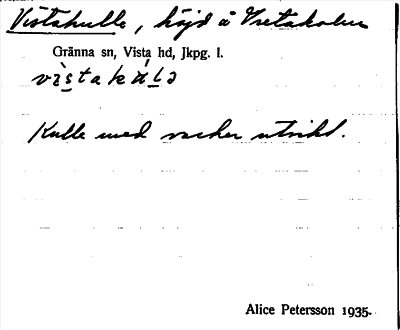 Vistakulle, höjd å Vretaholm
Gränna sn, Vista hd, Jkpg. l.
Kulle med vacker utsikt.
Alice Petersson 1935.